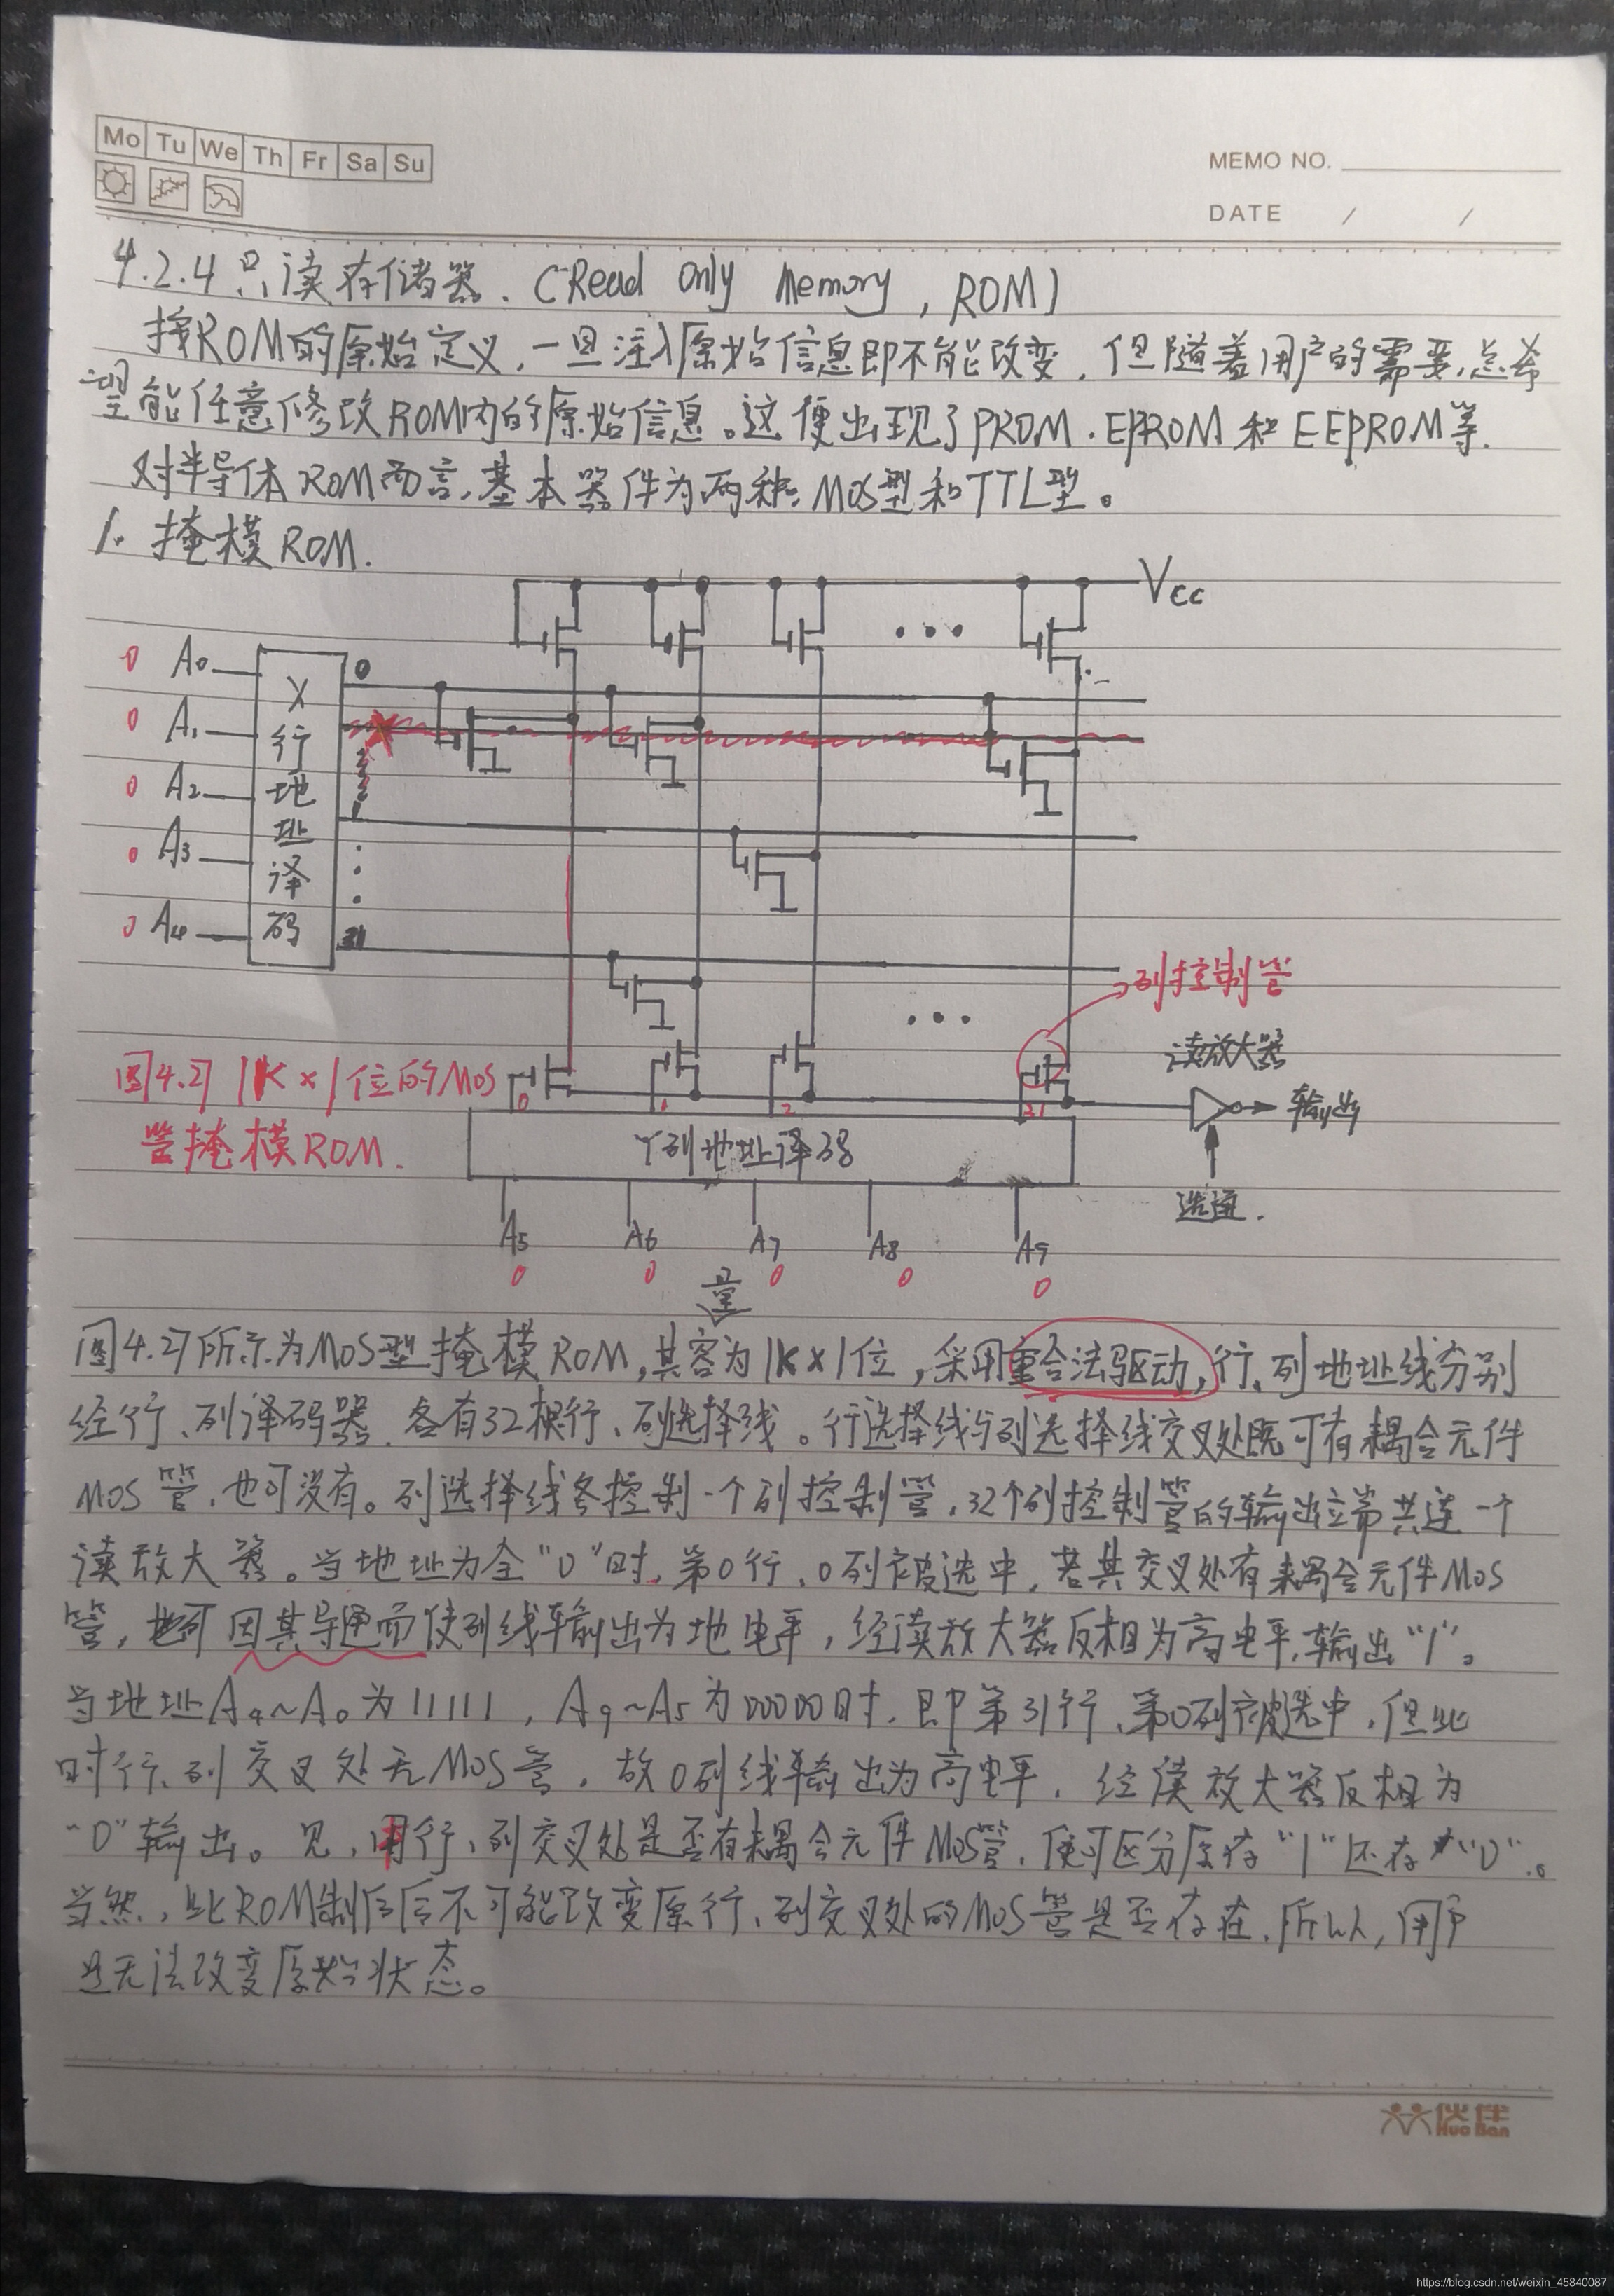 Mo Tu We Th Fr Sa Su
MEMO NO.
DATE / /
4.2.4 只读存储器. (Read Only Memory, ROM)
按ROM的原始定义,一旦注入原始信息即不能改变,但随着用户的需要,总希
望能任意修改ROM内的原始信息。这便出现了PROM.EPROM和EEPROM等.
对半导体ROM而言,基本器件为两种:MOS型和TTL型。
1. 掩模ROM.
Vcc
0 A0
0 A1
0 A2
0 A3
0 A4
X行地址译码
0
1
31
列控制管
读放大器
输出
图4.27 1K×1位的MOS
管掩模ROM.
0 1 2 31
Y列地址译码
A5 A6 A7 A8 A9
0 0 0 0 0
量
图4.27所示为MOS型掩模ROM,其容为1K×1位,采用重合法驱动,行、列地址线分别
经行、列译码器.各有32根行、列选择线。行选择线与列选择线交叉处既可有耦合元件
MOS管,也可没有。列选择线各控制一个列控制管,32个列控制管的输出端共连一个
读放大器。当地址为全“0”时,第0行、0列被选中,若其交叉处有耦合元件MOS
管,可因其导通而使列线输出为地电平,经读放大器反相为高电平,输出“1”。
当地址A4~A0为11111,A9~A5为00000时,即第31行、第0列被选中,但此
时行、列交叉处无MOS管,故0列线输出为高电平,经读放大器反相为
“0”输出。见,用行、列交叉处是否有耦合元件MOS管,便可区分原存“1”还存“0”。
当然,此ROM制后后不可能改变原行、列交叉处的MOS管是否存在,所以,用户
是无法改变原始状态。
伙伴
Huo Ban
https://blog.csdn.net/weixin_45840087